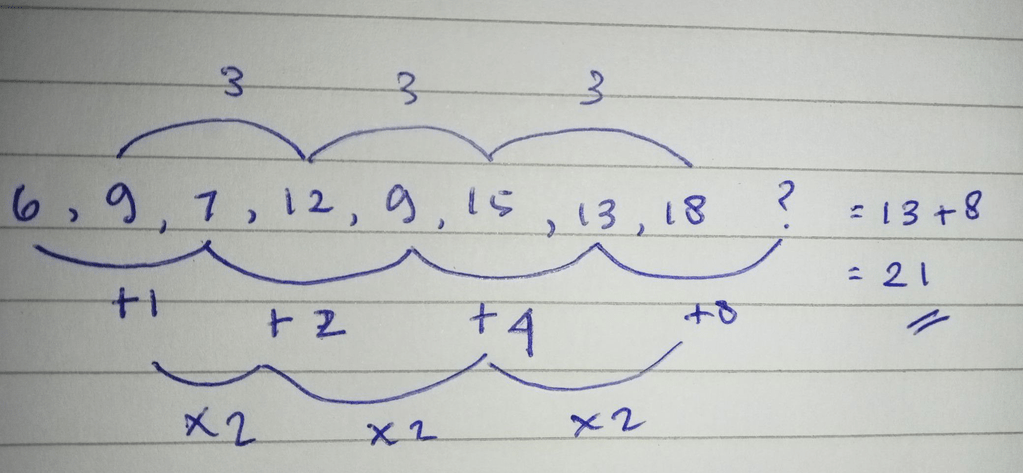 3 3 3
6, 9, 7, 12, 9, 15, 13, 18 ? = 13 + 8
= 21
+1 +2 +4 +8
×2 ×2 ×2